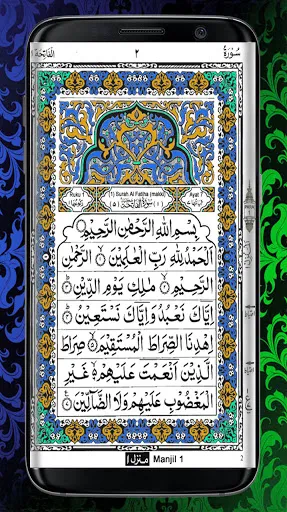 الفاتحة ٢ سُوْرَةُ
(1) Surah Al Fatiha (makki)
Ruku Ayat
بِسْمِ اللّٰهِ الرَّحْمٰنِ الرَّحِيْمِ
اَلْحَمْدُ لِلّٰهِ رَبِّ الْعٰلَمِيْنَ ۙ الرَّحْمٰنِ
الرَّحِيْمِ ۙ مٰلِكِ يَوْمِ الدِّيْنِ ؕ
اِيَّاكَ نَعْبُدُ وَاِيَّاكَ نَسْتَعِيْنُ ؕ
اِهْدِنَا الصِّرَاطَ الْمُسْتَقِيْمَ ۙ صِرَاطَ
الَّذِيْنَ اَنْعَمْتَ عَلَيْهِمْ ۙ غَيْرِ
الْمَغْضُوْبِ عَلَيْهِمْ وَلَا الضَّآلِّيْنَ
منزل ١ Manjil 1
2